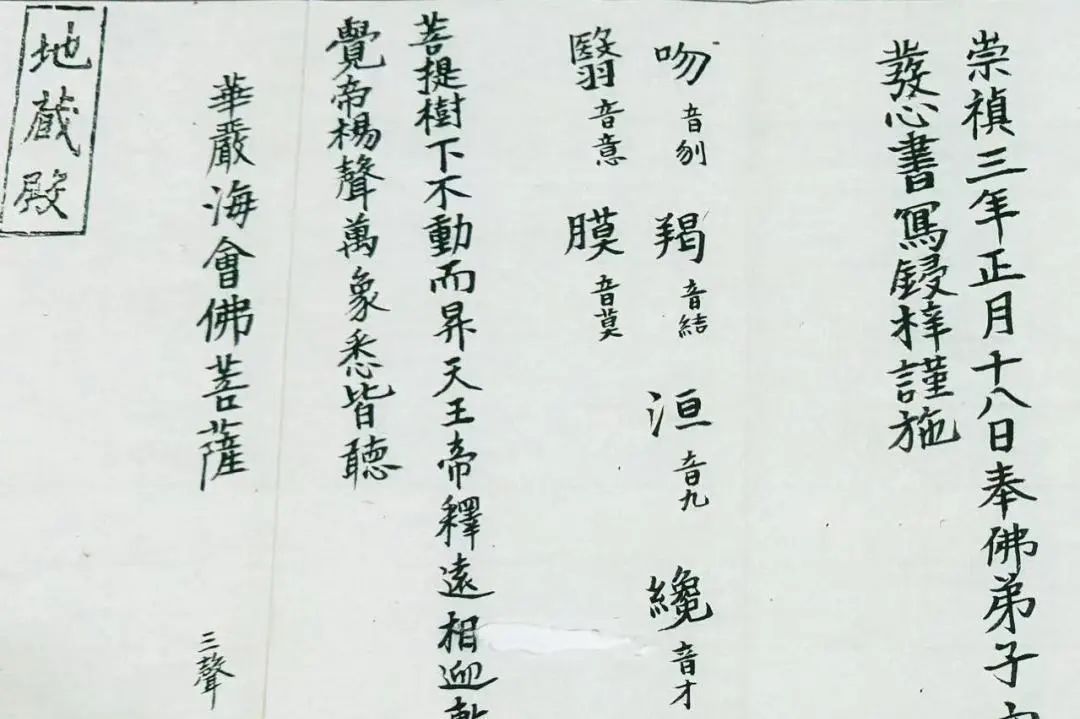 崇禎三年正月十八日奉佛弟子
發心書寫鋟梓謹施
吻音刎 羯音結 洹音九 纔音才
翳音意 膜音莫
菩提樹下不動而昇天王帝釋遠相迎
覺帝楊聲萬象悉皆聽
華嚴海會佛菩薩 三聲
地藏殿